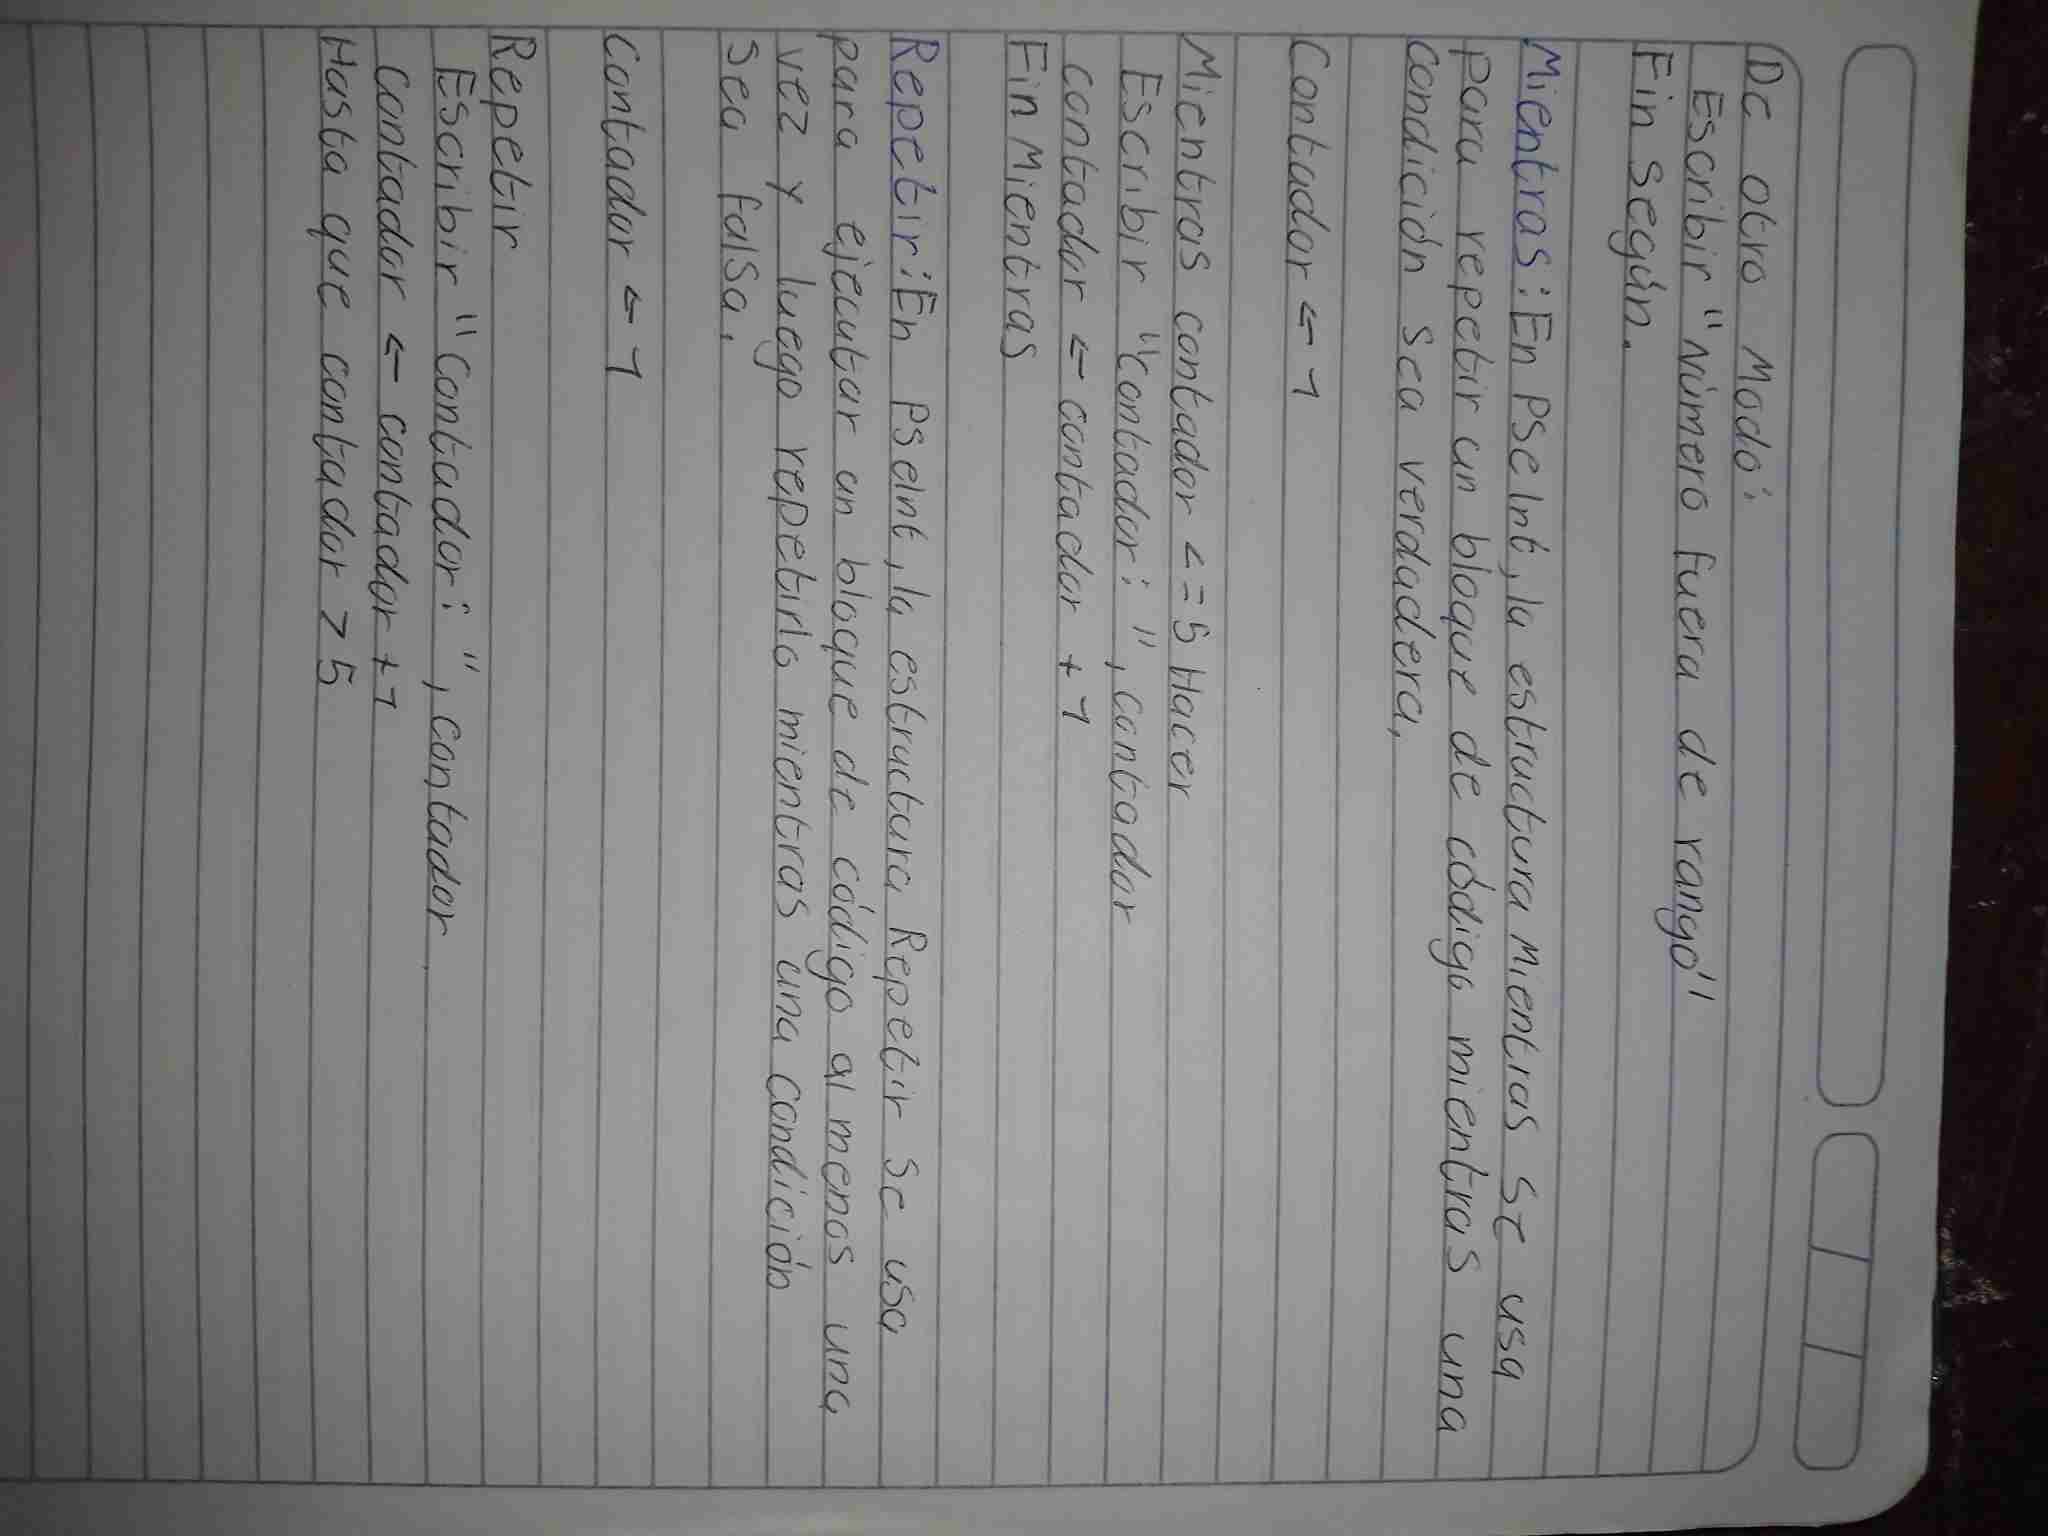 De otro Modo:
Escribir "Número fuera de rango"
Fin Según.
Mientras: En PSeInt, la estructura Mientras se usa
para repetir un bloque de código mientras una
condición sea verdadera.
Contador ← 1
Mientras contador <= 5 Hacer
Escribir "Contador: ", contador
contador ← contador + 1
Fin Mientras
Repetir: En PseInt, la estructura Repetir se usa
para ejecutar un bloque de código al menos una
vez y luego repetirlo mientras una condición
sea falsa.
Contador ← 1
Repetir
Escribir "Contador: ", contador
Contador ← contador + 1
Hasta que contador > 5